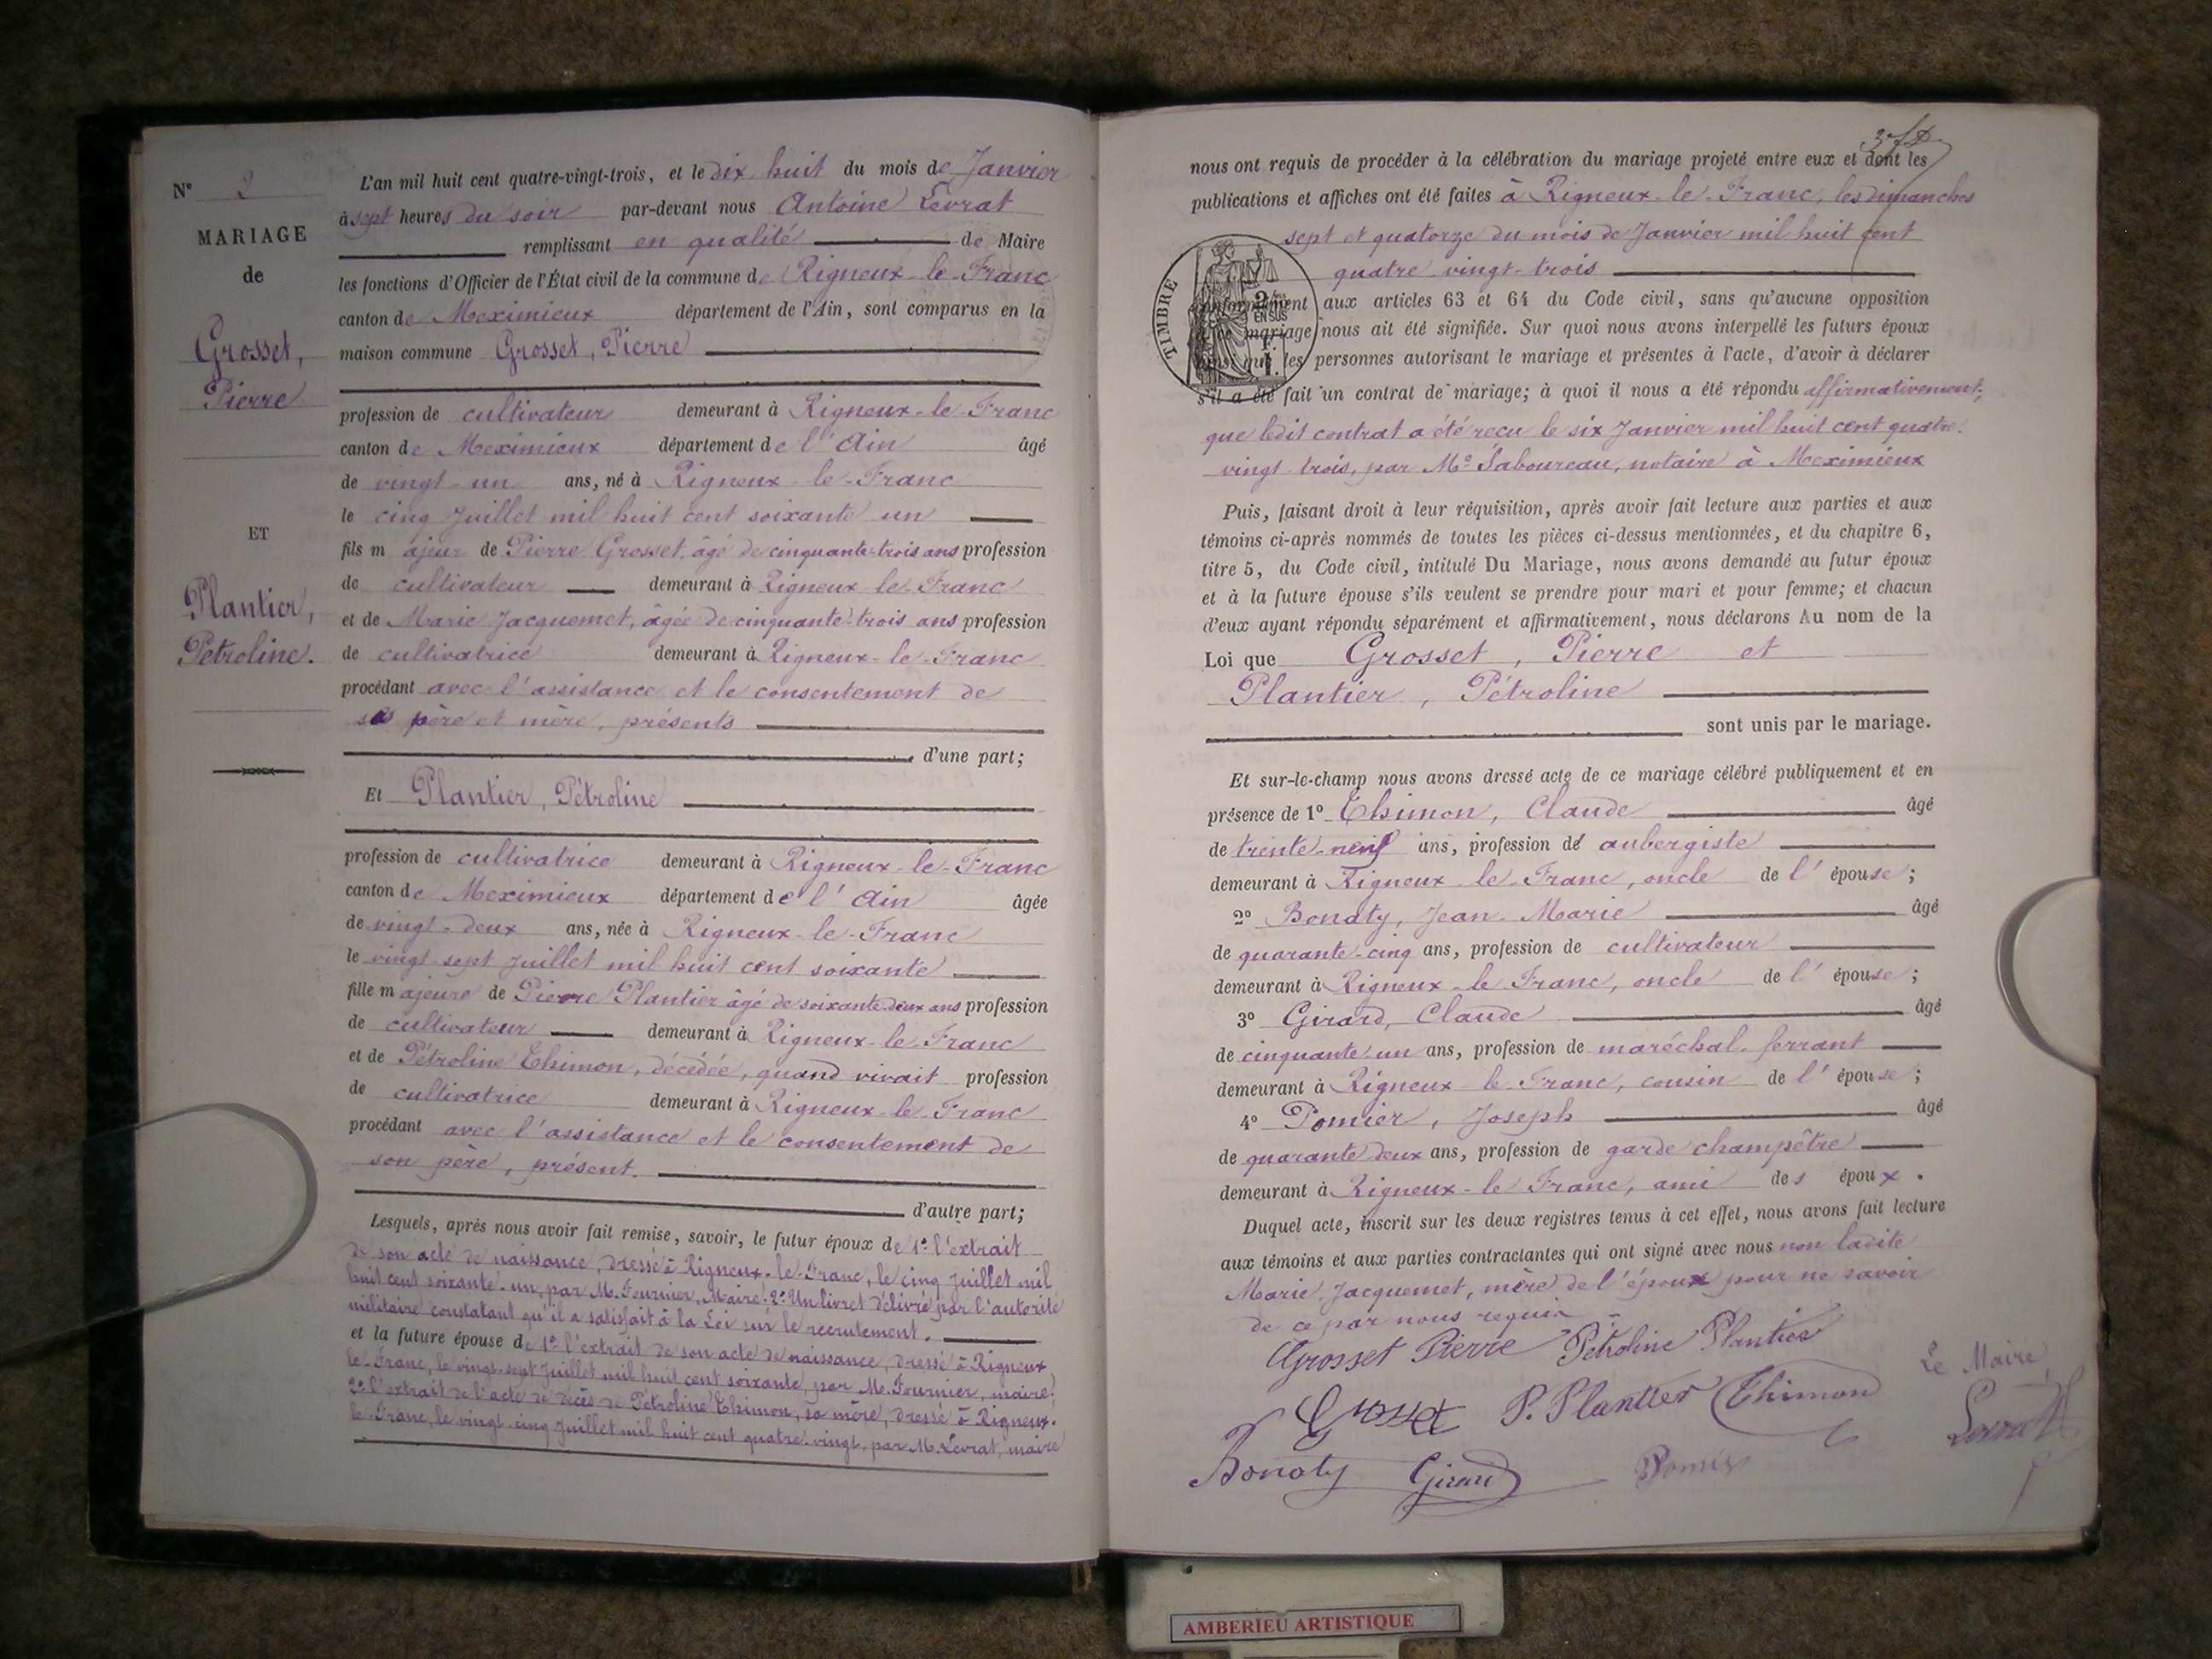 N° 2
MARIAGE
de
Grosset,
Pierre
ET
Plantier,
Pétroline.
L'an mil huit cent quatre-vingt-trois, et le dix huit du mois de Janvier
à sept heures du soir par-devant nous Antoine Levrat
remplissant en qualité de Maire
les fonctions d'Officier de l'État civil de la commune de Rigneux-le-Franc
canton de Meximieux département de l'Ain, sont comparus en la
maison commune Grosset, Pierre
profession de cultivateur demeurant à Rigneux-le-Franc
canton de Meximieux département de l'Ain âgé
de vingt-un ans, né à Rigneux-le-Franc
le cinq Juillet mil huit cent soixante un
fils majeur de Pierre Grosset, âgé de cinquante-trois ans profession
de cultivateur demeurant à Rigneux-le-Franc
et de Marie Jacquemet, âgée de cinquante-trois ans profession
de cultivatrice demeurant à Rigneux-le-Franc
procédant avec l'assistance et le consentement de
ses père et mère, présents
d'une part;
Et Plantier, Pétroline
profession de cultivatrice demeurant à Rigneux-le-Franc
canton de Meximieux département de l'Ain âgée
de vingt-deux ans, née à Rigneux-le-Franc
le vingt-sept Juillet mil huit cent soixante
fille majeure de Pierre Plantier âgé de soixante-deux ans profession
de cultivateur demeurant à Rigneux-le-Franc
et de Pétroline Thimon, décédée, quand vivait profession
de cultivatrice demeurant à Rigneux-le-Franc
procédant avec l'assistance et le consentement de
son père, présent.
d'autre part;
Lesquels, après nous avoir fait remise, savoir, le futur époux de 1° l'extrait
de son acte de naissance, dressé à Rigneux-le-Franc, le cinq Juillet mil
huit cent soixante-un, par M. Fournier, Maire; 2° Un livret délivré par l'autorité
militaire constatant qu'il a satisfait à la Loi sur le recrutement.
et la future épouse de 1° l'extrait de son acte de naissance, dressé à Rigneux
le-Franc, le vingt-sept Juillet mil huit cent soixante, par M. Fournier, maire;
2° l'extrait de l'acte de décès de Pétroline Thimon, sa mère, dressé à Rigneux-
le-Franc, le vingt-cinq Juillet mil huit cent quatre-vingt, par M. Levrat, maire
nous ont requis de procéder à la célébration du mariage projeté entre eux et dont les
publications et affiches ont été faites à Rigneux-le-Franc, les dimanches
sept et quatorze du mois de Janvier mil huit cent
quatre-vingt-trois
TIMBRE
2/10es
EN SUS
conformément aux articles 63 et 64 du Code civil, sans qu'aucune opposition
mariage nous ait été signifiée. Sur quoi nous avons interpellé les futurs époux
ainsi que les personnes autorisant le mariage et présentes à l'acte, d'avoir à déclarer
s'il a été fait un contrat de mariage; à quoi il nous a été répondu affirmativement;
que ledit contrat a été reçu le six Janvier mil huit cent quatre-
vingt-trois, par Me Saboureau, notaire à Meximieux
Puis, faisant droit à leur réquisition, après avoir fait lecture aux parties et aux
témoins ci-après nommés de toutes les pièces ci-dessus mentionnées, et du chapitre 6,
titre 5, du Code civil, intitulé Du Mariage, nous avons demandé au futur époux
et à la future épouse s'ils veulent se prendre pour mari et pour femme; et chacun
d'eux ayant répondu séparément et affirmativement, nous déclarons Au nom de la
Loi que Grosset, Pierre et
Plantier, Pétroline
sont unis par le mariage.
Et sur-le-champ nous avons dressé acte de ce mariage célébré publiquement et en
présence de 1° Thimon, Claude âgé
de trente-neuf ans, profession de aubergiste
demeurant à Rigneux le-Franc, oncle de l'épouse;
2° Bonaty, Jean-Marie âgé
de quarante-cinq ans, profession de cultivateur
demeurant à Rigneux-le Franc, oncle de l'épouse;
3° Girard, Claude âgé
de cinquante-un ans, profession de maréchal-ferrant
demeurant à Rigneux-le-Franc, cousin de l'épouse;
4° Pomier, Joseph âgé
de quarante deux ans, profession de garde champêtre
demeurant à Rigneux-le Franc, ami des époux.
Duquel acte, inscrit sur les deux registres tenus à cet effet, nous avons fait lecture
aux témoins et aux parties contractantes qui ont signé avec nous non ladite
Marie Jacquemet, mère de l'époux pour ne savoir
de ce par nous requis
Grosset Pierre Pétroline Plantier
Le Maire,
Grosset P. Plantier Thimon
Levrat
Bonaty Girard Pomier
AMBERIEU ARTISTIQUE